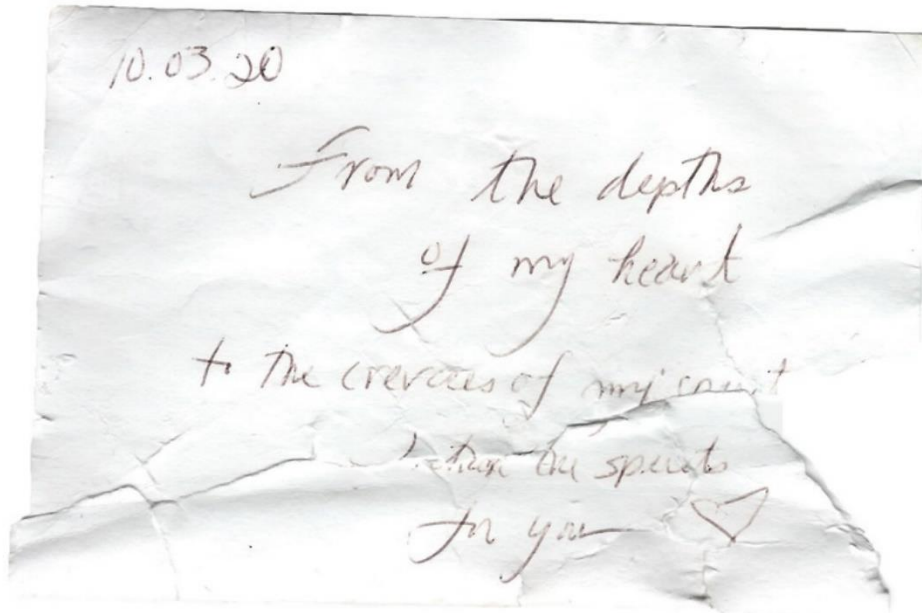 10.03.20
From the depths
of my heart
to the crevaces of my
the spirits
for you ♡